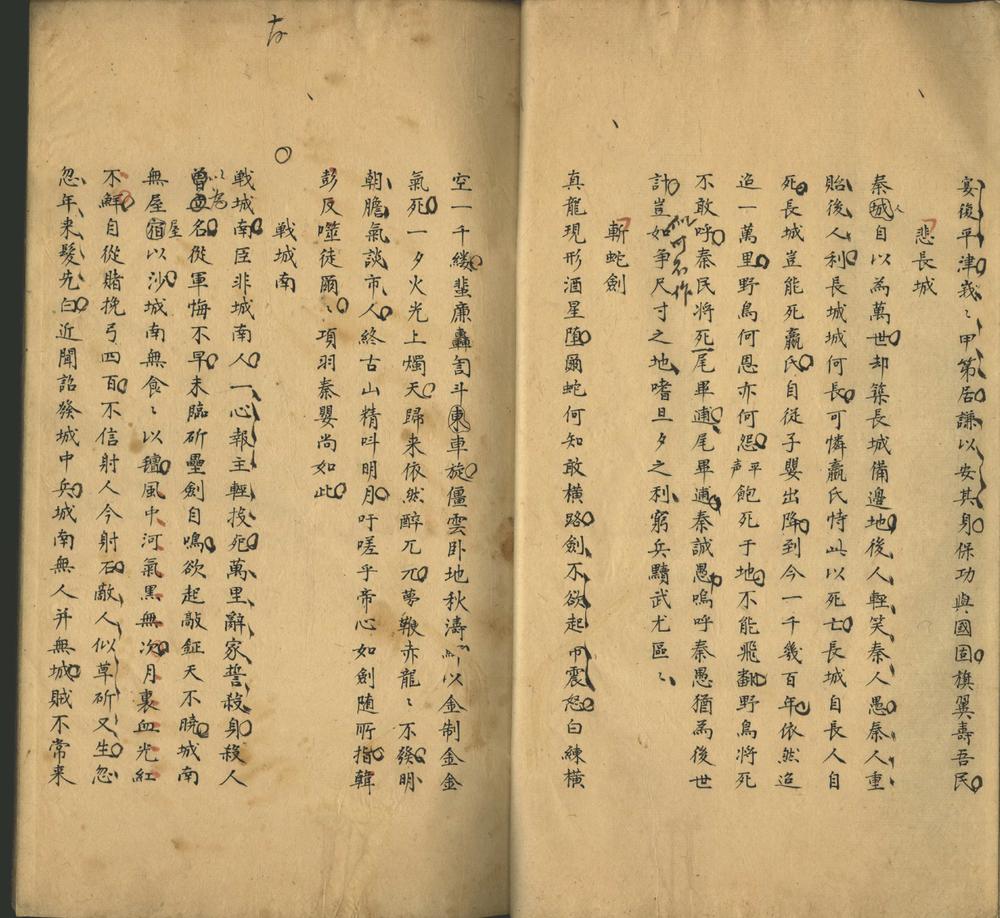 宴後平津峩〻甲第居謙以安其身保功與國固模翼壽吾民
悲長城
秦城人自以為萬世却築長城備邊地後人輕笑秦人愚秦人人重
貽後人利長城城何長可憐嬴氏恃此以死亡長城自長人自
死長城豈能死嬴氏自從子嬰出降到今一千幾百年依然迨
迨一萬里野鳥何恩亦何怨平声飽死于地不能飛翻野鳥將死
不敢呼秦民將死尾畢逋尾畢逋秦誠愚嗚呼秦愚猶為後世
計豈如爭尺寸之地嗜旦夕之利窮兵黷武尤區〻
似可不作
斬蛇劍
真龍現形酒星墮爾蛇何知敢橫路劍不欲起帝震怒白練橫
空一千縷蜚廉轟訇斗東車旋僵雲卧地秋濤以金制金金
氣死一夕火光上燭天歸来依然醉兀兀夢鞭赤龍〻不發明
朝膽氣談市人終古山精呌明月吁嗟乎帝心如劍随所指韓
彭反噬徒爾〻項羽秦嬰尚如此
戦城南
戰城南臣非城南人一心報主輕投死萬里辭家誓殺身殺人
曾以為名從軍悔不早未臨斫壘劍自鳴欲起敲鉦天不曉城南
無屋宿屋以沙城南無食〻以氊風中河氣黑無次月裏血光紅
不鮮自從賭挽弓四百不信射人今射石敵人似草斫又生忽
忽年来髮先白近聞詔發城中兵城南無人并無城賊不常来